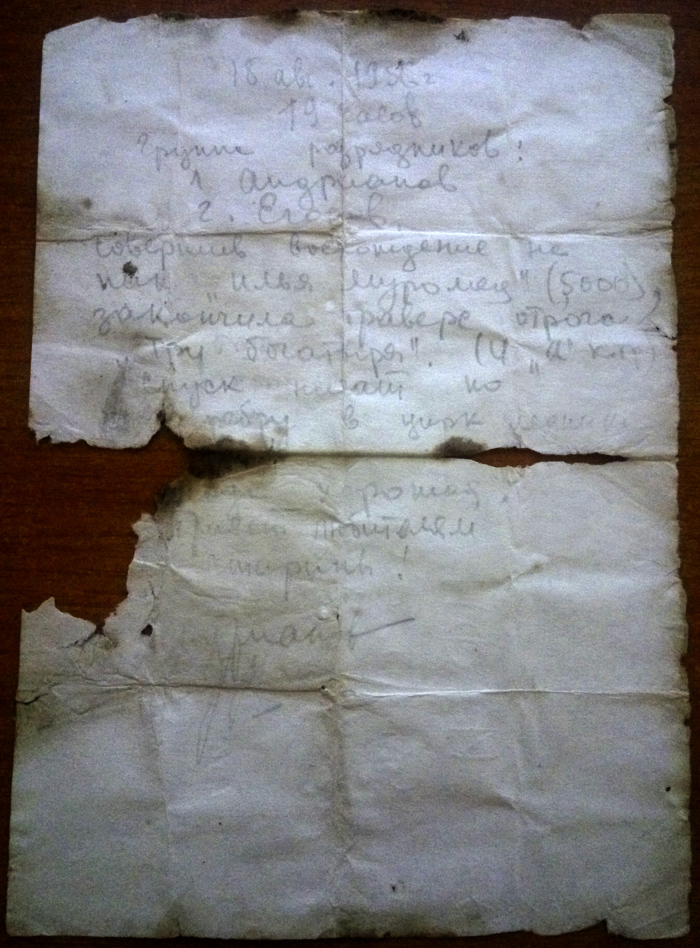 авг. 195
19 часов
Группа разрядников:
1. Андрианов
2. Егоров,
совершив восхождение на
пик "Илья Муромец" (5000),
закончила траверс отрога
"Три богатыря". (4 "А" к.тр)
Спуск начат по
ребру в цирк
хороша!
Привет любителям